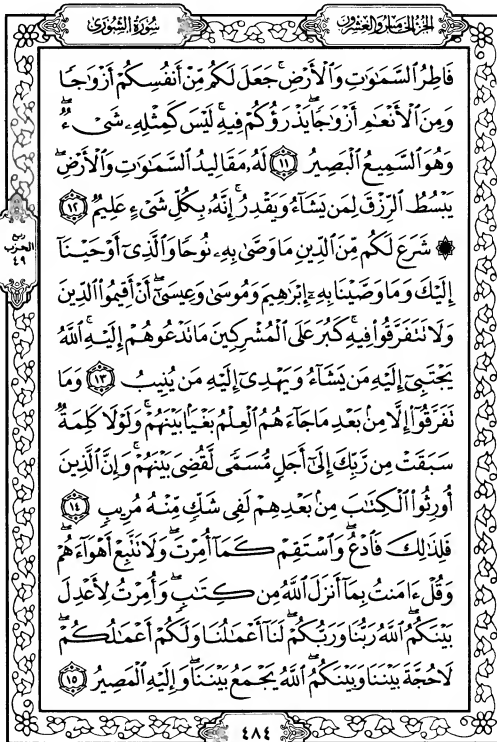 الجزء الخامس والعشرون
سورة الشورى
فَاطِرُ ٱلسَّمَٰوَٰتِ وَٱلْأَرْضِ ۚ جَعَلَ لَكُم مِّنْ أَنفُسِكُمْ أَزْوَٰجًا
وَمِنَ ٱلْأَنْعَٰمِ أَزْوَٰجًا ۖ يَذْرَؤُكُمْ فِيهِ ۚ لَيْسَ كَمِثْلِهِۦ شَىْءٌ ۖ
وَهُوَ ٱلسَّمِيعُ ٱلْبَصِيرُ ١١ لَهُۥ مَقَالِيدُ ٱلسَّمَٰوَٰتِ وَٱلْأَرْضِ ۖ
يَبْسُطُ ٱلرِّزْقَ لِمَن يَشَآءُ وَيَقْدِرُ ۚ إِنَّهُۥ بِكُلِّ شَىْءٍ عَلِيمٌ ١٢
ربع
الحزب
٤٩
۞ شَرَعَ لَكُم مِّنَ ٱلدِّينِ مَا وَصَّىٰ بِهِۦ نُوحًا وَٱلَّذِىٓ أَوْحَيْنَآ
إِلَيْكَ وَمَا وَصَّيْنَا بِهِۦٓ إِبْرَٰهِيمَ وَمُوسَىٰ وَعِيسَىٰٓ ۖ أَنْ أَقِيمُوا۟ ٱلدِّينَ
وَلَا تَتَفَرَّقُوا۟ فِيهِ ۚ كَبُرَ عَلَى ٱلْمُشْرِكِينَ مَا تَدْعُوهُمْ إِلَيْهِ ۚ ٱللَّهُ
يَجْتَبِىٓ إِلَيْهِ مَن يَشَآءُ وَيَهْدِىٓ إِلَيْهِ مَن يُنِيبُ ١٣ وَمَا
تَفَرَّقُوٓا۟ إِلَّا مِنۢ بَعْدِ مَا جَآءَهُمُ ٱلْعِلْمُ بَغْيًۢا بَيْنَهُمْ ۚ وَلَوْلَا كَلِمَةٌ
سَبَقَتْ مِن رَّبِّكَ إِلَىٰٓ أَجَلٍ مُّسَمًّى لَّقُضِىَ بَيْنَهُمْ ۚ وَإِنَّ ٱلَّذِينَ
أُورِثُوا۟ ٱلْكِتَٰبَ مِنۢ بَعْدِهِمْ لَفِى شَكٍّ مِّنْهُ مُرِيبٍ ١٤
فَلِذَٰلِكَ فَٱدْعُ ۖ وَٱسْتَقِمْ كَمَآ أُمِرْتَ ۖ وَلَا تَتَّبِعْ أَهْوَآءَهُمْ ۖ
وَقُلْ ءَامَنتُ بِمَآ أَنزَلَ ٱللَّهُ مِن كِتَٰبٍ ۖ وَأُمِرْتُ لِأَعْدِلَ
بَيْنَكُمُ ۖ ٱللَّهُ رَبُّنَا وَرَبُّكُمْ ۖ لَنَآ أَعْمَٰلُنَا وَلَكُمْ أَعْمَٰلُكُمْ ۖ
لَا حُجَّةَ بَيْنَنَا وَبَيْنَكُمُ ۖ ٱللَّهُ يَجْمَعُ بَيْنَنَا ۖ وَإِلَيْهِ ٱلْمَصِيرُ ١٥
٤٨٤